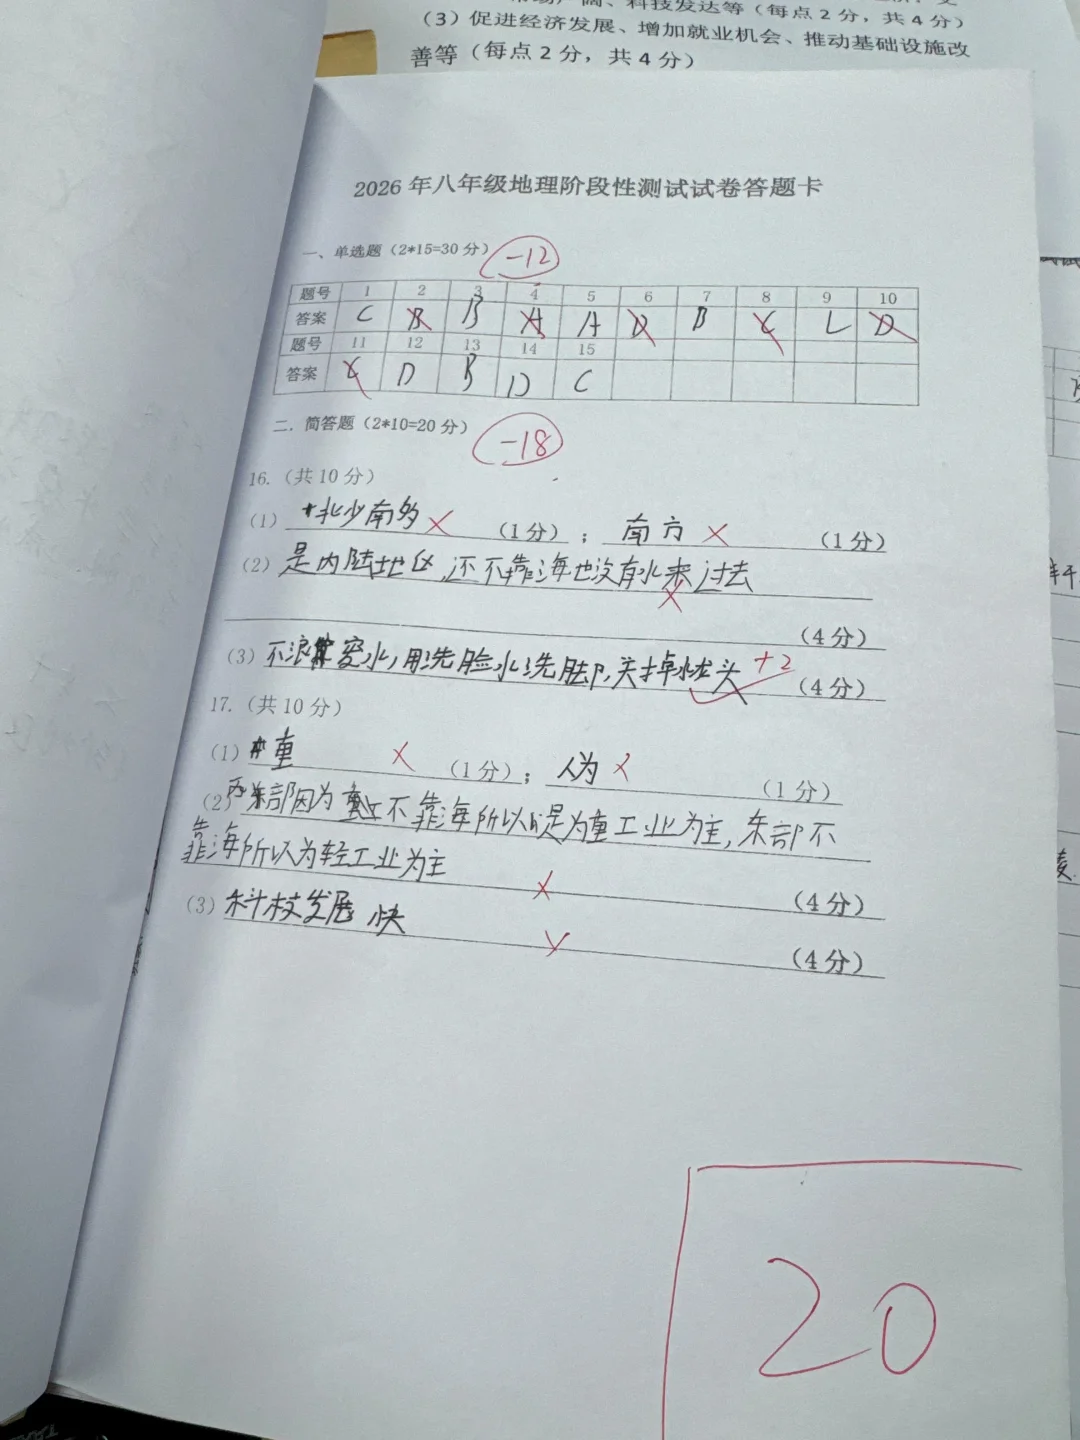 市场广阔、科技发达等（每点2分，共4分）
（3）促进经济发展、增加就业机会、推动基础设施改
善等（每点2分，共4分）
2026年八年级地理阶段性测试试卷答题卡
一、单选题（2*15=30分） -12
题号 1 2 3 4 5 6 7 8 9 10
答案 C B B A A D B C C D
题号 11 12 13 14 15
答案 C D B D C
二．简答题（2*10=20分） -18
16.（共10分）
（1）北少南多（1分）；南方（1分）
（2）是内陆地区,还不靠海也没有水来过去
（4分）
（3）不浪费水,用洗脸水洗脚,关掉水龙头 +2（4分）
17.（共10分）
（1）重（1分）；人为（1分）
（2）西东部因为不靠海所以是为重工业为主,东部不
靠海所以为轻工业为主
（4分）
（3）科技发展快
（4分）
20